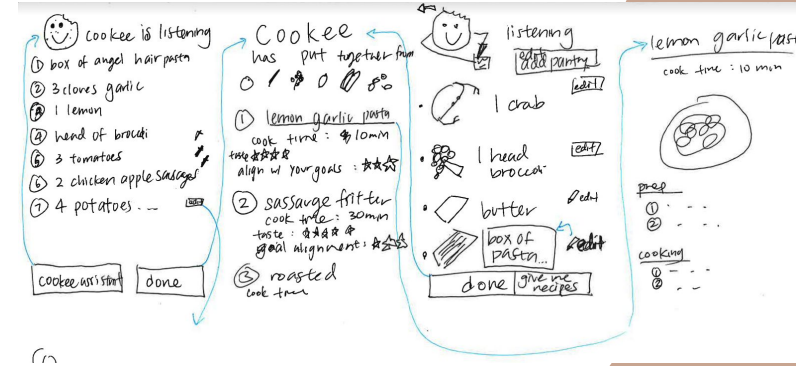 cookee is listening
① box of angel hair pasta
② 3 cloves garlic
③ 1 lemon
④ head of broccoli
⑤ 3 tomatoes
⑥ 2 chicken apple sausages
⑦ 4 potatoes...
cookee assistant
done
Cookee
has put together from
① lemon garlic pasta
cook time: 10min
taste ☆☆☆☆
align w/ your goals: ☆☆☆
② sassauge fritter
cook time: 30min
taste: ☆☆☆☆
goal alignment: ☆☆☆
③ roasted
cook time
listening
add pantry
edit
1 crab
edit
1 head
broccoli
butter
edit
box of
pasta...
edit
done
give me
recipes
lemon garlic past
cook time: 10 min
prep
① - - -
② - - -
cooking
① - - -
② - -